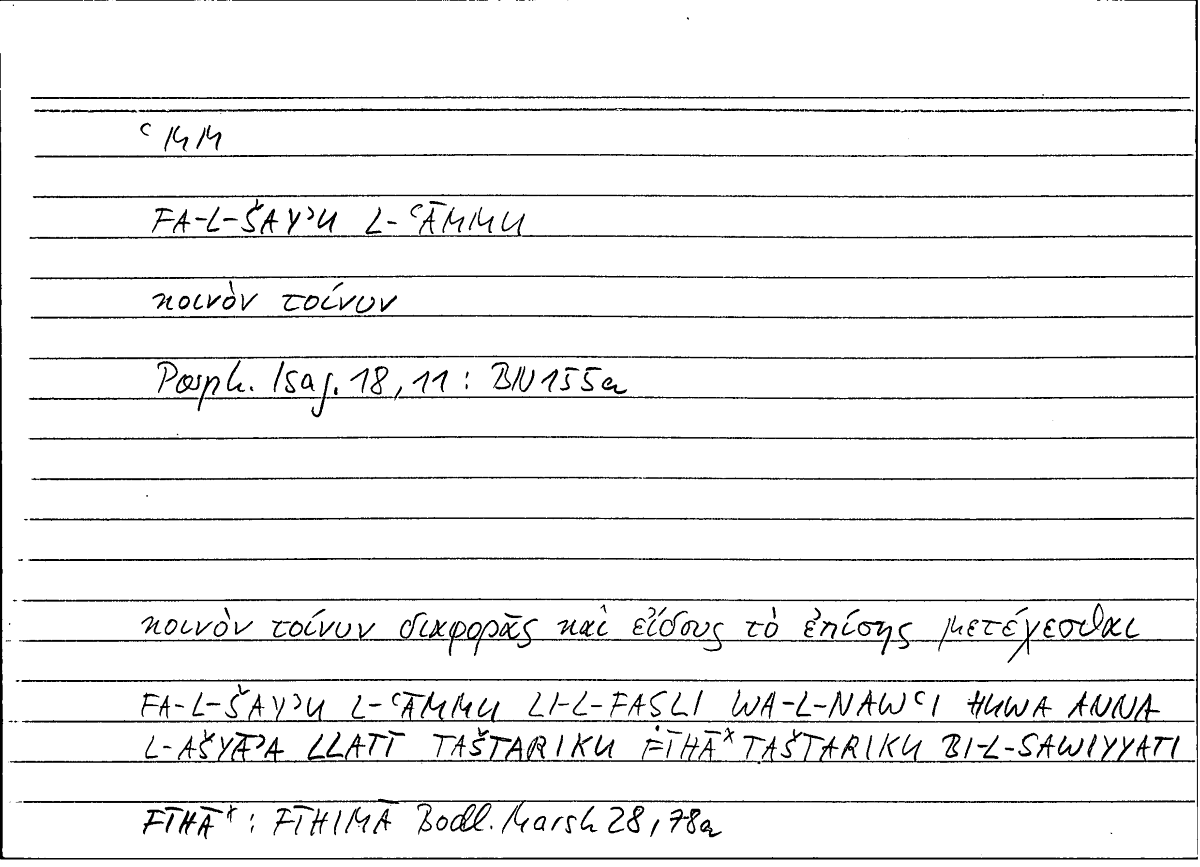 ʿMM
FA-L-ŠAYʾU L-ʿĀMMU
κοινὸν τοίνυν
Porph. Isag. 18, 11 : BN 155a
κοινὸν τοίνυν διαφορᾶς καὶ εἴδους τὸ ἐπίσης μετέχεσθαι
FA-L-ŠAYʾU L-ʿĀMMU LI-L-FAṢLI WA-L-NAWʿI HUWA ANNA
L-AŠYĀʾA LLATĪ TAŠTARIKU FĪHĀˣ TAŠTARIKU BI-L-SAWIYYATI
FĪHĀˣ : FĪHIMĀ Bodl. Marsh 28, 78a